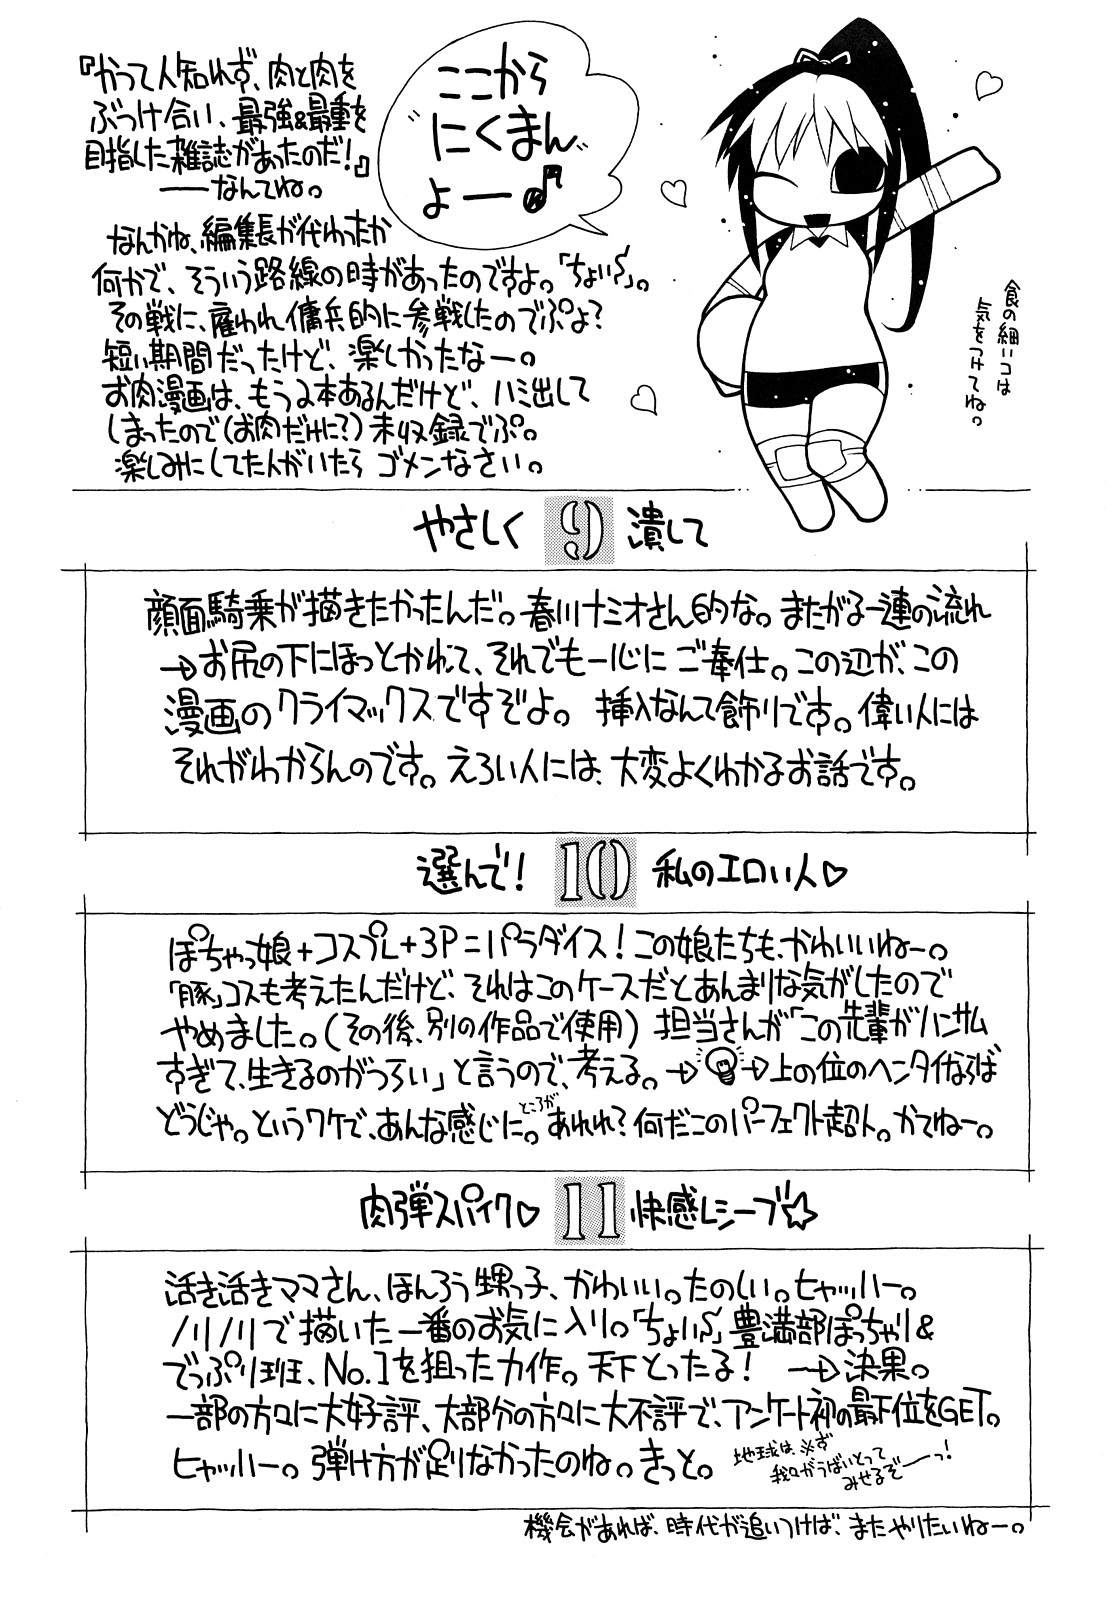 『かつて人知れず、肉と肉を
ぶつけ合い、最強&最重を
目指した雑誌があったのだ！』
——なんてね。
ここから
にくまん
よー♪
なんかね、編集長が代わったか
何かで、そういう路線の時があったのですよ。「ちょい〜」。
その戦に、雇われ傭兵的に参戦したのでぷよ？
短い期間だったけど、楽しかったなー。
お肉漫画は、もう2本あるんだけど、ハミ出して
しまったので(お肉だけに？)未収録でぷ。
楽しみにしてた人がいたら ゴメンなさい。
食の細いコは
気をつけてね。
やさしく 9 潰して
顔面騎乗が描きたかったんだ。春川ナミオさん的な。またがる一連の流れ
→お尻の下にほっとかれて、それでも一心に ご奉仕。この辺が、この
漫画のクライマックスですぞよ。 挿入なんて飾りです。偉い人には
それがわからんのです。えろい人には、大変よくわかるお話です。
選んで！ 10 私のエロい人♡
ぽちゃっ娘+コスプレ+3P=パラダイス！この娘たちも、かわいいねー。
「豚」コスも考えたんだけど、それはこのケースだとあんまりな気がしたので
やめました。(その後、別の作品で使用) 担当さんが「この先輩がハンサム
すぎて、生きるのがつらい」と言うので、考える。→→上の位のヘンタイならば
どうじゃ。というワケで、あんな感じに。ところが あれれ？何だこのパーフェクト超人。かてねー。
肉弾スパイク♡ 11 快感レシーブ☆
活き活きママさん、ほんろう甥っ子、かわいい。たのしい。ヒャッハー。
ノリノリで描いた一番のお気に入り。「ちょい〜」豊満部ぽっちゃり&
でっぷり班、No.1を狙った力作。天下とったる！ —→決果。
一部の方々に大好評、大部分の方々に大不評で、アンケート初の最下位をGET。
ヒャッハー。弾け方が足りなかったのね。きっと。
地球は、※ず
我々がうばいとって
みせるぞ——っ！
機会があれば、時代が追いつけば、またやりたいねー。